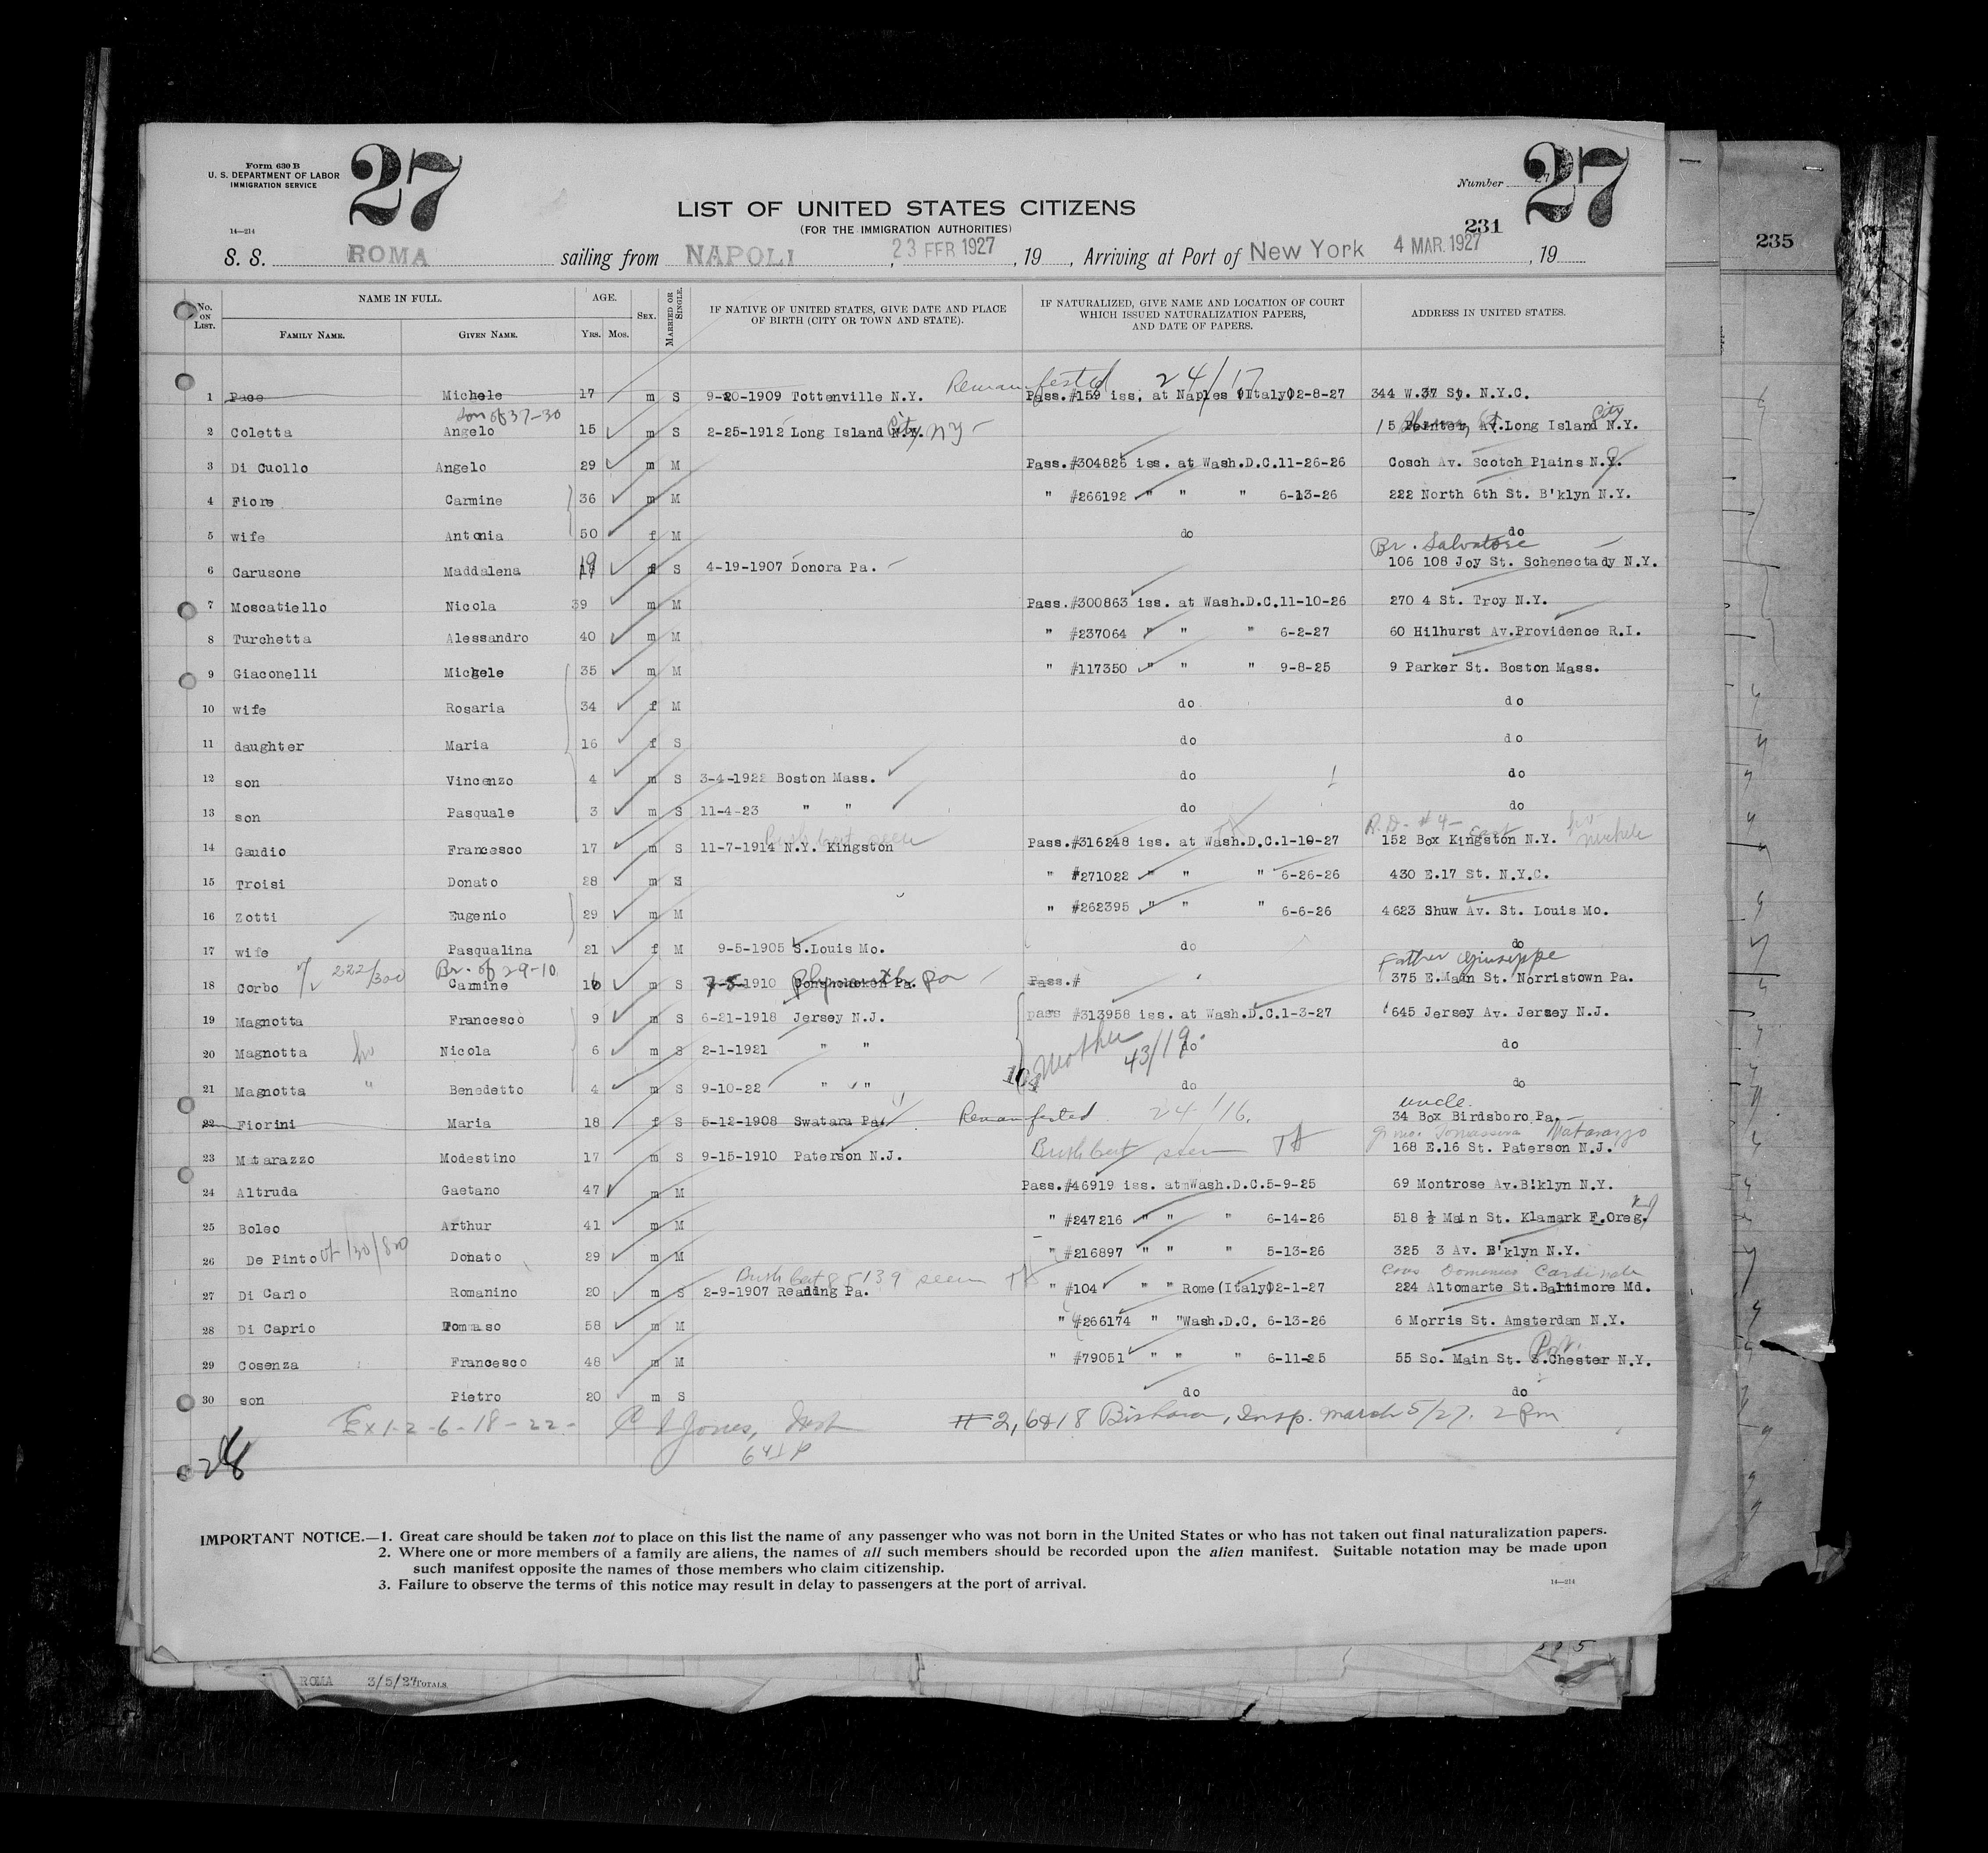 Form 630 B
U. S. DEPARTMENT OF LABOR
IMMIGRATION SERVICE
27
Number 27
27
14—214
LIST OF UNITED STATES CITIZENS
(FOR THE IMMIGRATION AUTHORITIES)
231
235
S. S. ROMA sailing from NAPOLI, 23 FEB 1927, 19 , Arriving at Port of New York 4 MAR. 1927, 19
No. ON LIST. NAME IN FULL. AGE. SEX. MARRIED OR SINGLE. IF NATIVE OF UNITED STATES, GIVE DATE AND PLACE OF BIRTH (CITY OR TOWN AND STATE). IF NATURALIZED, GIVE NAME AND LOCATION OF COURT WHICH ISSUED NATURALIZATION PAPERS, AND DATE OF PAPERS. ADDRESS IN UNITED STATES.
FAMILY NAME. GIVEN NAME. YRS. MOS.
Remanifested 24/17
1 Pace Michele 17 m S 9-20-1909 Tottenville N.Y. Pass.#159 iss. at Naples (Italy) 2-8-27 344 W.37 St. N.Y.C.
son of 37-30 City
2 Coletta Angelo 15 m S 2-25-1912 Long Island N.Y. City NY 15 Pointer Av.Long Island N.Y.
3 Di Cuollo Angelo 29 m M Pass.#304826 iss. at Wash.D.C.11-26-26 Cosch Av. Scotch Plains N.Y.
4 Fiore Carmine 36 m M " #266192 " " " 6-13-26 222 North 6th St. B'klyn N.Y.
5 wife Antonia 50 f M do do
Br. Salvatore
6 Carusone Maddalena 19 f S 4-19-1907 Donora Pa. 106 108 Joy St. Schenectady N.Y.
7 Moscatiello Nicola 39 m M Pass.#300863 iss. at Wash.D.C.11-10-26 270 4 St. Troy N.Y.
8 Turchetta Alessandro 40 m M " #237064 " " " 6-2-27 60 Hilhurst Av.Providence R.I.
9 Giaconelli Michele 35 m M " #117350 " " " 9-8-25 9 Parker St. Boston Mass.
10 wife Rosaria 34 f M do do
11 daughter Maria 16 f S do do
12 son Vincenzo 4 m S 3-4-1922 Boston Mass. do do
13 son Pasquale 3 m S 11-4-23 " " do do
Birth cert seen R.D. #4- East
14 Gaudio Francesco 17 m S 11-7-1914 N.Y. Kingston Pass.#316248 iss. at Wash.D.C.1-10-27 152 Box Kingston N.Y. Michele
15 Troisi Donato 28 m S " #271022 " " " 6-26-26 430 E.17 St. N.Y.C.
16 Zotti Eugenio 29 m M " #262395 " " " 6-6-26 4623 Shuw Av. St. Louis Mo.
17 wife Pasqualina 21 f M 9-5-1905 S.Louis Mo. do do
222/300 Br. of 29-10 Father Giuseppe
18 Corbo Carmine 16 m S 7-5-1910 Conshohocken Pa. Pa Pass.# 375 E.Main St. Norristown Pa.
19 Magnotta Francesco 9 m S 6-21-1918 Jersey N.J. pass #313958 iss. at Wash.D.C.1-3-27 645 Jersey Av. Jersey N.J.
20 Magnotta Nicola 6 m S 2-1-1921 " " Mother 43/19 do do
21 Magnotta " Benedetto 4 m S 9-10-22 " " do do
uncle
22 Fiorini Maria 18 f S 5-12-1908 Swatara Pa. Remanifested 24/16. 34 Box Birdsboro Pa.
Matarazzo
23 Matarazzo Modestino 17 m S 9-15-1910 Paterson N.J. Birth cert seen 168 E.16 St. Paterson N.J.
24 Altruda Gaetano 47 m M Pass.#46919 iss. at Wash.D.C.5-9-25 69 Montrose Av.B'klyn N.Y.
25 Boleo Arthur 41 m M " #247216 " " " 6-14-26 518 ½ Main St. Klamark F.Oreg.
26 De Pinto Donato 29 m M " #216897 " " " 5-13-26 325 3 Av. B'klyn N.Y.
Birth Cert 85139 seen Cous Domenico Cardinale
27 Di Carlo Romanino 20 m S 2-9-1907 Reading Pa. " #104 " " Rome(Italy) 2-1-27 224 Altomarte St.Baltimore Md.
28 Di Caprio Tommaso 58 m M " #266174 " "Wash.D.C. 6-13-26 6 Morris St. Amsterdam N.Y.
Port
29 Cosenza Francesco 48 m M " #79051 " " " 6-11-25 55 So. Main St. S.Chester N.Y.
30 son Pietro 20 m S do do
Ex 1-2-6-18-22- Jones, #2,6&18 Insp. March 5/27. 2 Pm
28
IMPORTANT NOTICE.—1. Great care should be taken not to place on this list the name of any passenger who was not born in the United States or who has not taken out final naturalization papers.
2. Where one or more members of a family are aliens, the names of all such members should be recorded upon the alien manifest. Suitable notation may be made upon
such manifest opposite the names of those members who claim citizenship.
3. Failure to observe the terms of this notice may result in delay to passengers at the port of arrival.
14—214
ROMA 3/5/27 TOTALS